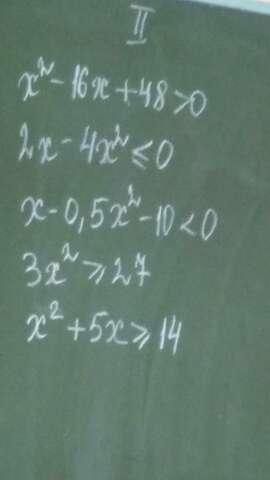 II
x² - 16x + 48 > 0
2x - 4x² ≤ 0
x - 0,5x² - 10 < 0
3x² ≥ 27
x² + 5x ≥ 14